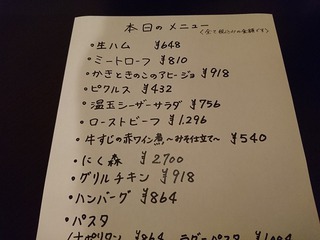 本日のメニュー
(全て税込みの金額です)
・生ハム ¥648
・ミートローフ ¥810
・かきときのこのアヒージョ ¥918
・ピクルス ¥432
・温玉シーザーサラダ ¥756
・ローストビーフ ¥1,296
・牛すじの赤ワイン煮〜みそ仕立て〜 ¥540
・にく森 ¥2700
・グリルチキン ¥918
・ハンバーグ ¥864
・パスタ
(ナポリタン ¥864 ラグーパスタ